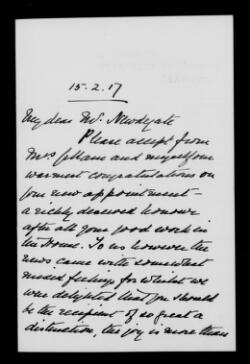 15.2.17
My dear Mr. Newdegate
Please accept from
Mrs and myself our
warmest congratulations on
your new appointment –
a richly deserved honour
after all your good work in
the House. To us however the
news came with somewhat
mixed feelings for whilst we
were delighted that you should
be the recipient of so great a
distinction, the joy is more than